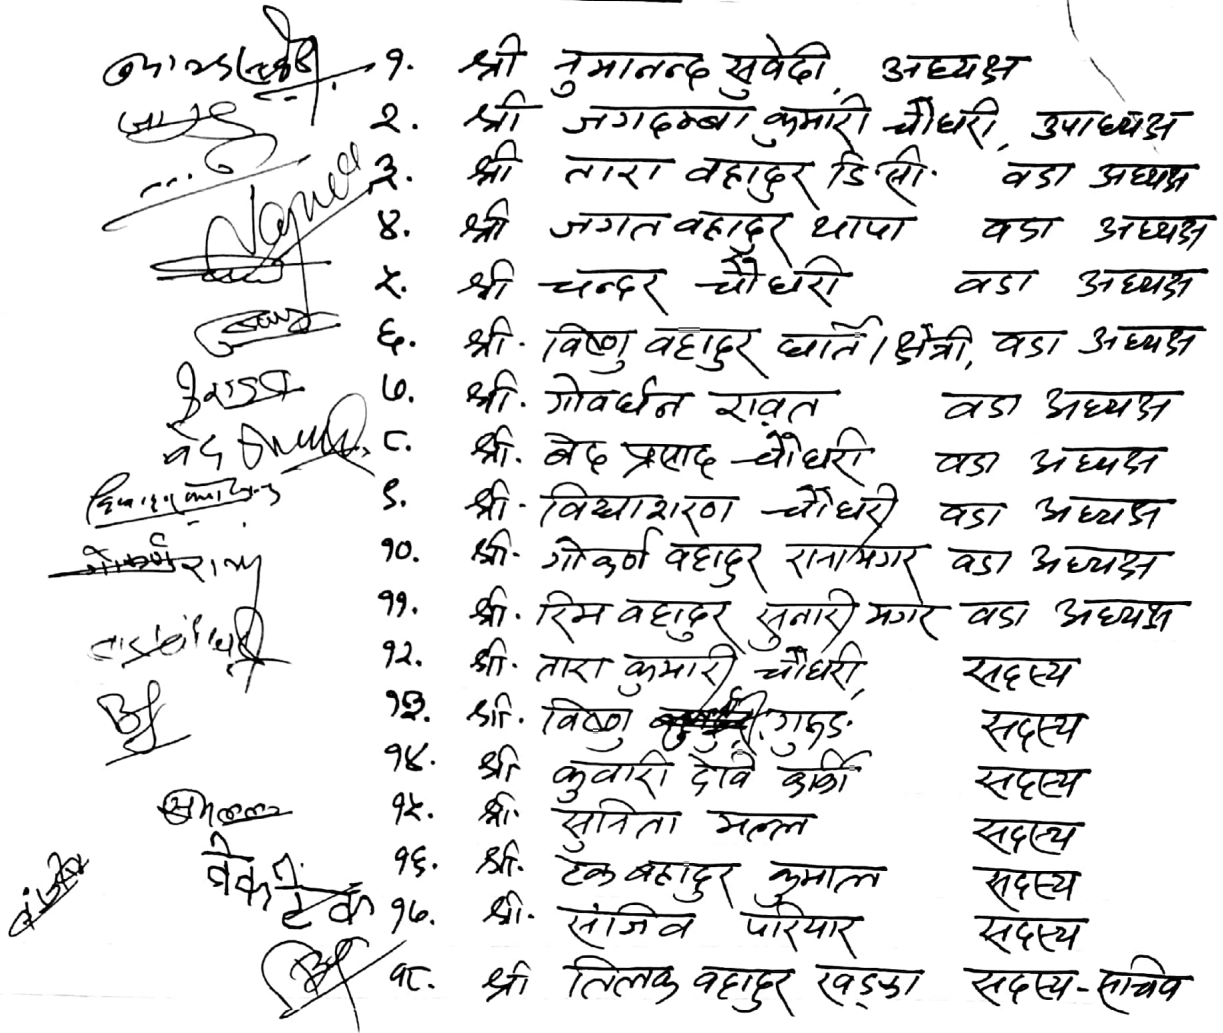 १. श्री नुमानन्द सुवेदी, अध्यक्ष
२. श्री जगदम्बा कुमारी चौधरी, उपाध्यक्ष
३. श्री तारा वहादुर डि.सी. वडा अध्यक्ष
४. श्री जगत वहादुर थापा वडा अध्यक्ष
५. श्री चन्दर चौधरी वडा अध्यक्ष
६. श्री. विष्णु वहादुर घर्ति क्षेत्री, वडा अध्यक्ष
७. श्री. गोवर्धन रावत वडा अध्यक्ष
८. श्री. बेद प्रसाद चौधरी वडा अध्यक्ष
९. श्री. विद्याशरण चौधरी वडा अध्यक्ष
१०. श्री. गोकर्ण वहादुर रानामगर वडा अध्यक्ष
११. श्री. रिम वहादुर सुनारी मगर वडा अध्यक्ष
१२. श्री. तारा कुमारी चौधरी, सदस्य
१३. श्री. विष्णु गुरुङ सदस्य
१४. श्री कुवारी देवि कार्की सदस्य
१५. श्री. सुनिता मल्ल सदस्य
१६. श्री. टेक बहादुर कुमाल सदस्य
१७. श्री. संजिव परियार सदस्य
१८. श्री तिलक वहादुर खड्का सदस्य-सचिव